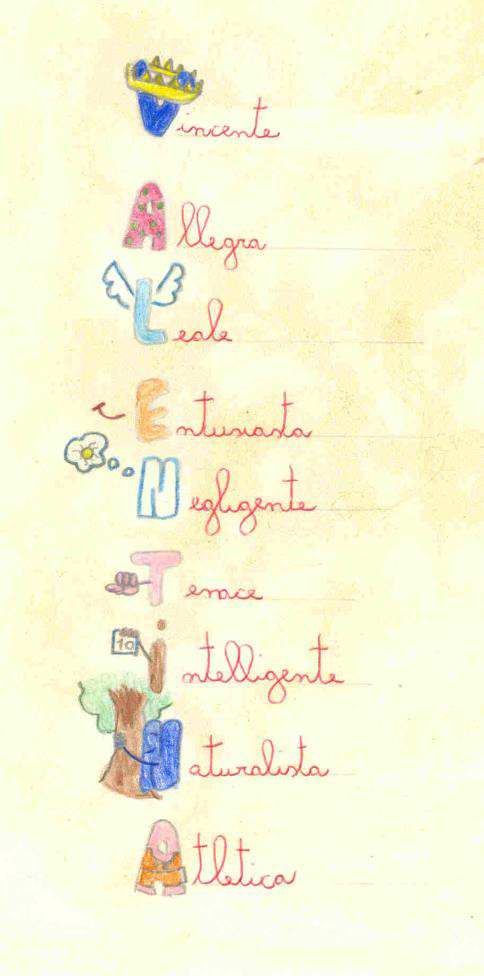 Vincente
Allegra
Leale
Entusiasta
Negligente
Tenace
10
intelligente
Naturalista
Atletica